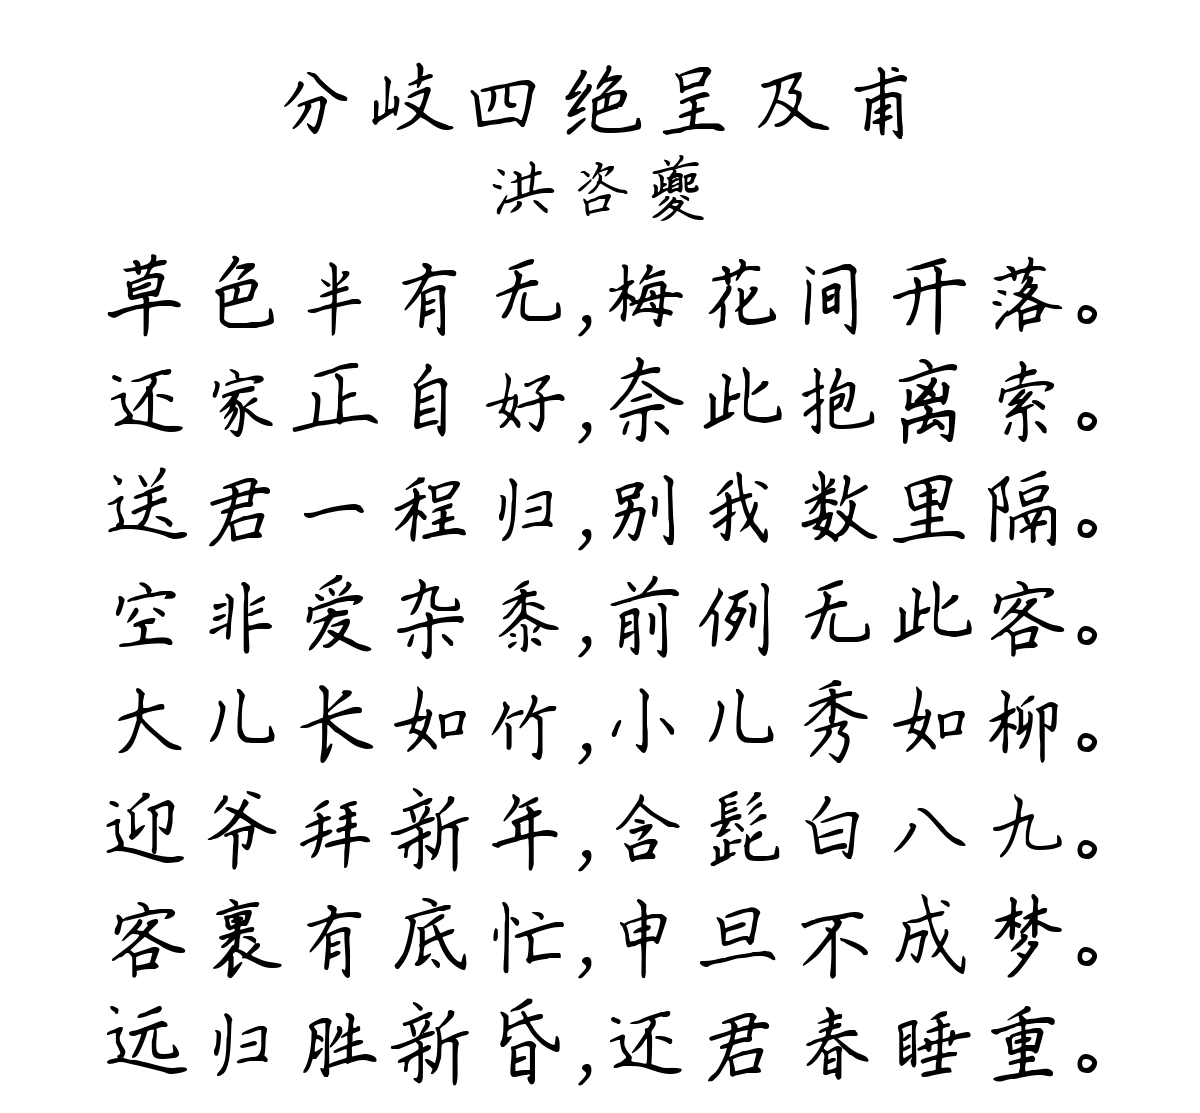 分岐四绝呈及甫
洪咨夔
草色半有无,梅花间开落。
还家正自好,奈此抱离索。
送君一程归,别我数里隔。
空非爱杂黍,前例无此客。
大儿长如竹,小儿秀如柳。
迎爷拜新年,含髭白八九。
客裹有底忙,申旦不成梦。
远归胜新昏,还君春睡重。